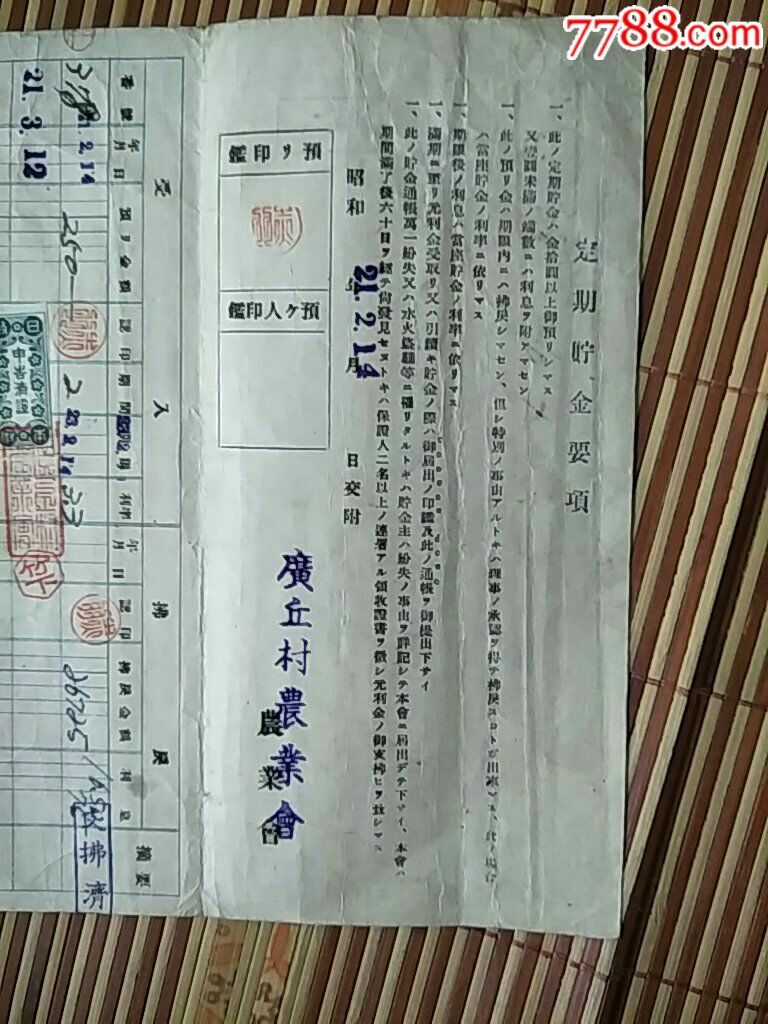 7788.com
定期貯金要項
一、此ノ定期貯金ハ金拾圓以上御預リシマス
又壹圓未滿ノ端數ニハ利息ヲ附マセン
一、此ノ預リ金ハ期限內ニハ拂戾シマセン、但シ特別ノ事由アルトキハ理事ノ承認ヲ得テ拂戾スコト
ハ當座貯金ノ利率ニ依リマス
一、期限後ノ利息ハ當座貯金ノ利率ニ依リマス
一、滿期ニ至リ元利金受取リ又ハ引續キ貯金ノ際ハ御屆出ノ印鑑及此ノ通帳ヲ御提出下サイ
一、此ノ貯金通帳萬一紛失又ハ水火盜難等ニ罹リタルトキハ貯金主ハ紛失ノ事由ヲ詳記シテ本會ニ屆出デテ下サイ、本會ハ
期間滿了後六十日ヲ經テ尙發見セヌトキハ保證人二名以上ノ連署アル領收證書ヲ徵シ元利金ノ御支拂ヒヲ致シマス
昭和 年 月 日交附
21.2.14
廣丘村農業會
農業會
預ヲ印鑑
預ケ人印鑑
受入
拂戾
摘要
番號
年月日
預リ金額
認印
期間
利率
年月日
認印
拂戾金額
利息
21.2.14
250
2
23.2.14
3.3
21.3.12
拂濟